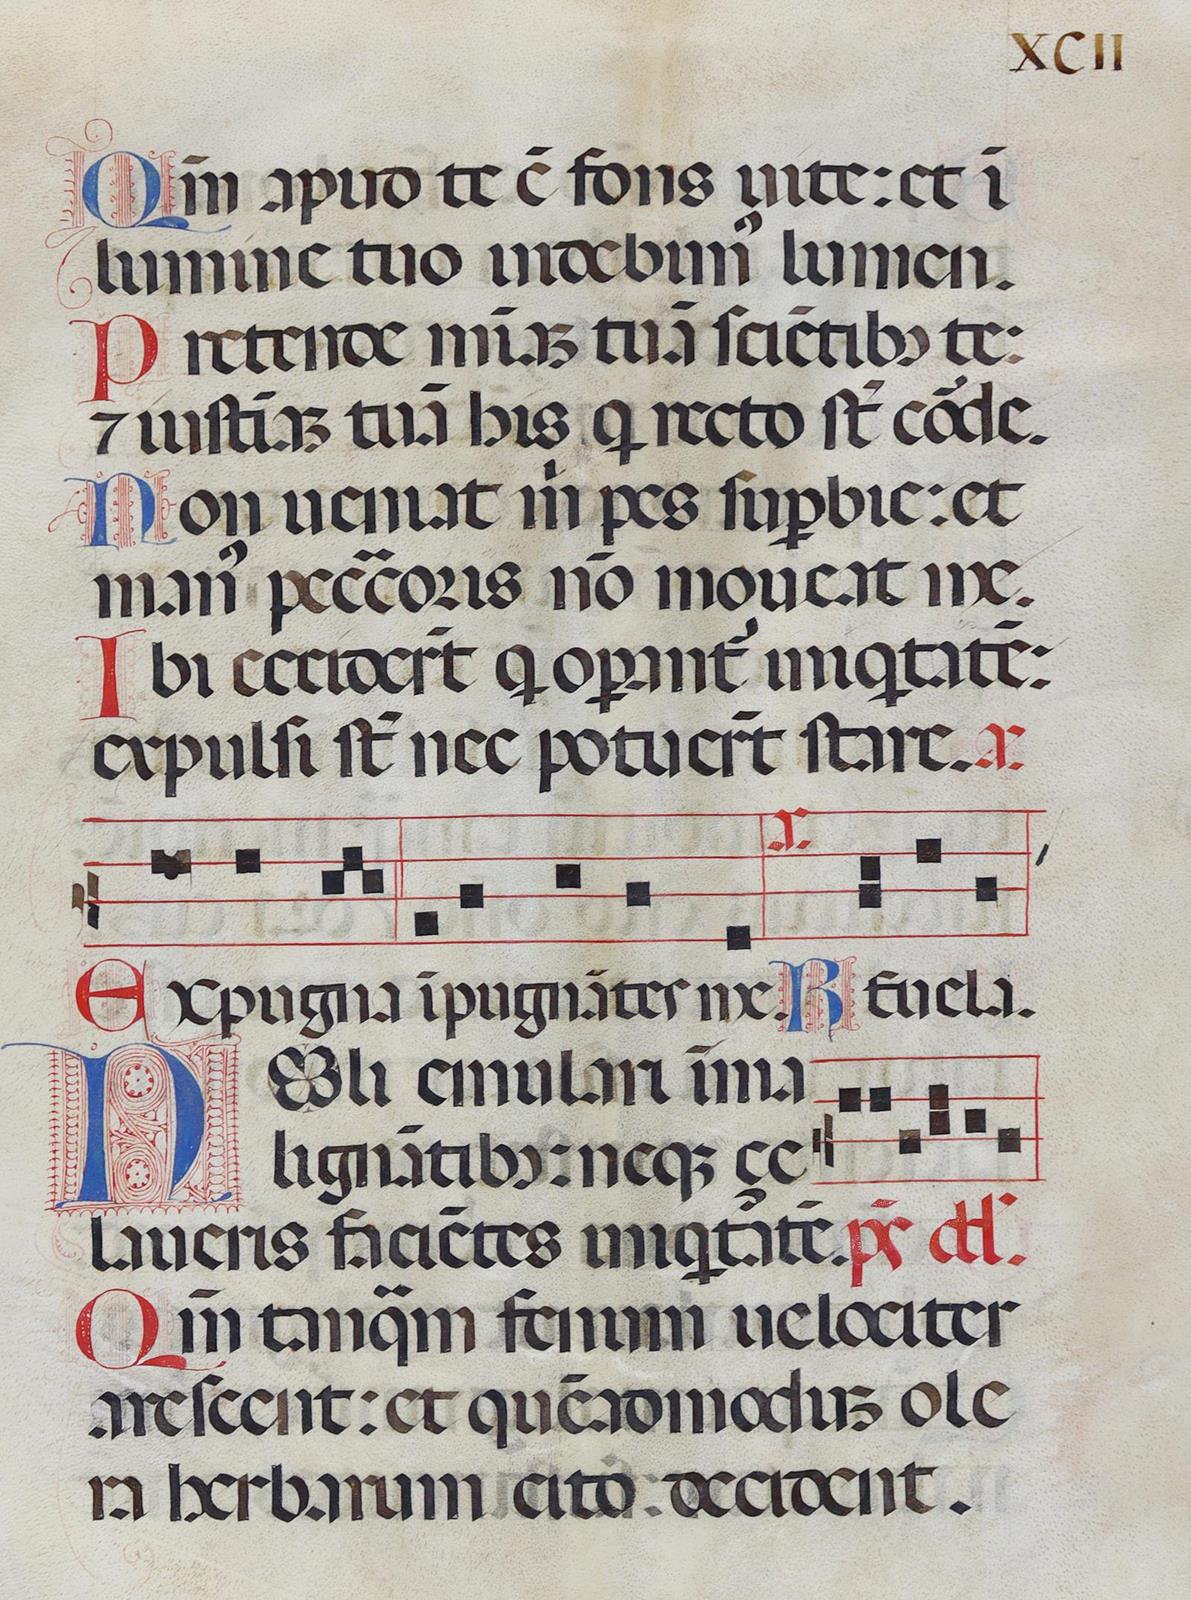 XCII
Qm̄ apud te ē fons uite: et ī
lumine tuo uidebim⁹ lumen.
Pretende mīaꝫ tuā scientibꝫ te:
⁊ iustiaꝫ tuā his q recto st̄ cōde.
Non ueniat m̄ pes suꝑbie: et
man⁹ pecc̄coꝛis nō moueat me.
Ibi cecider̄t q opant̄ iniqtatē:
expulsi st̄ nec potuer̄t stare. a.
a.
Expugna īpugnātes me. R Euela.
Noli emulari ī ma
lignātibꝫ: neqꝫ çe
laueris faciētes iniqtatē. ps̄ dd̄.
Qm̄ tanqm̄ fenum uelociter
arescent: et quēadmoduꝫ ole
ra herbarum cito decident.